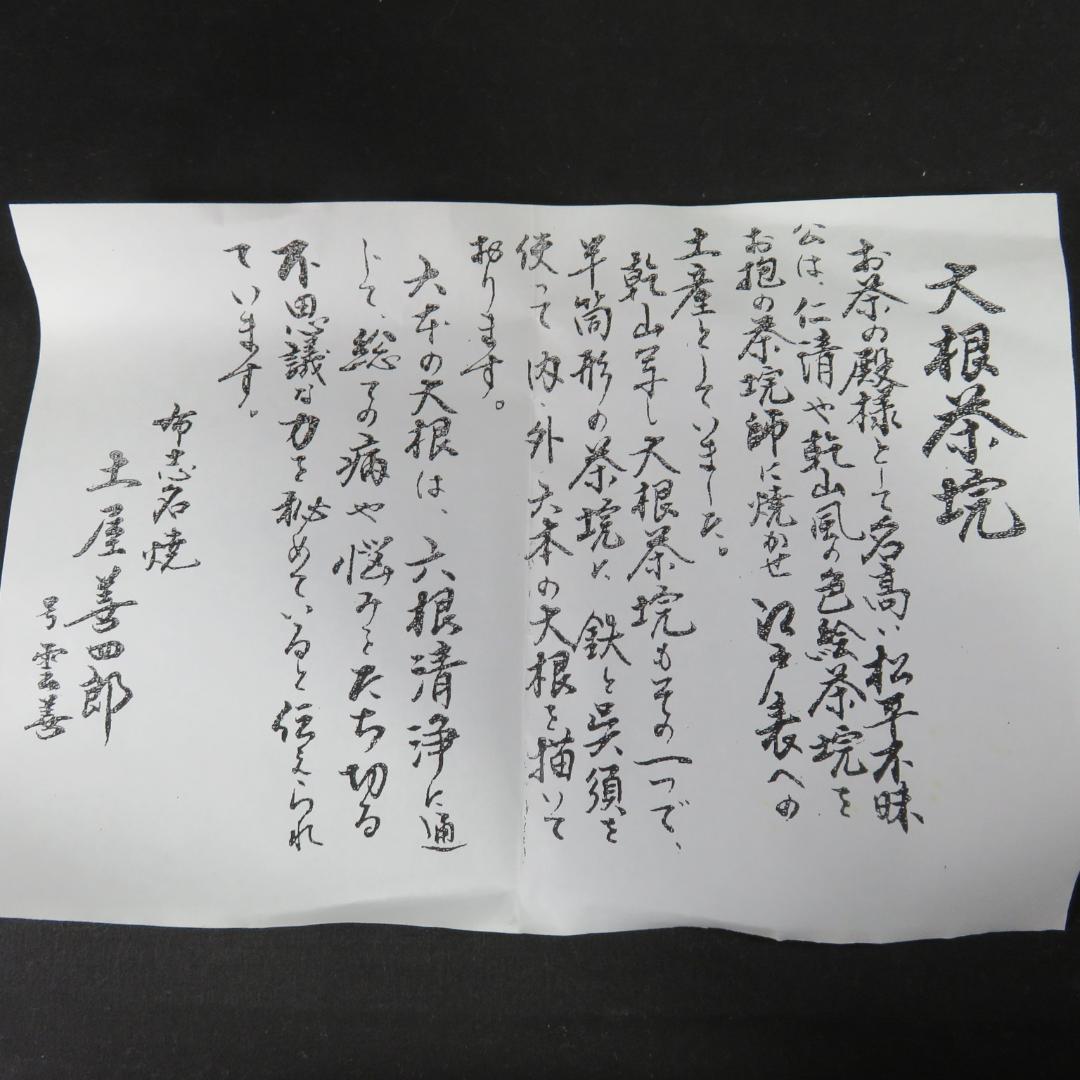 大根茶垸
お茶の殿様として名高い松平不昧
公は、仁清や乾山風の色絵茶垸を
お抱の茶垸師に焼かせ江戸表への
土産としていました。
乾山写し大根茶垸もその一つで、
半筒形の茶垸に鉄と呉須を
使って内・外六本の大根を描いて
おります。
六本の大根は、六根清浄に通
じて、総ての病や悩みをたち切る
不思議な力を秘めていると伝えられ
ています。
布志名焼
土屋善四郎
号雲善